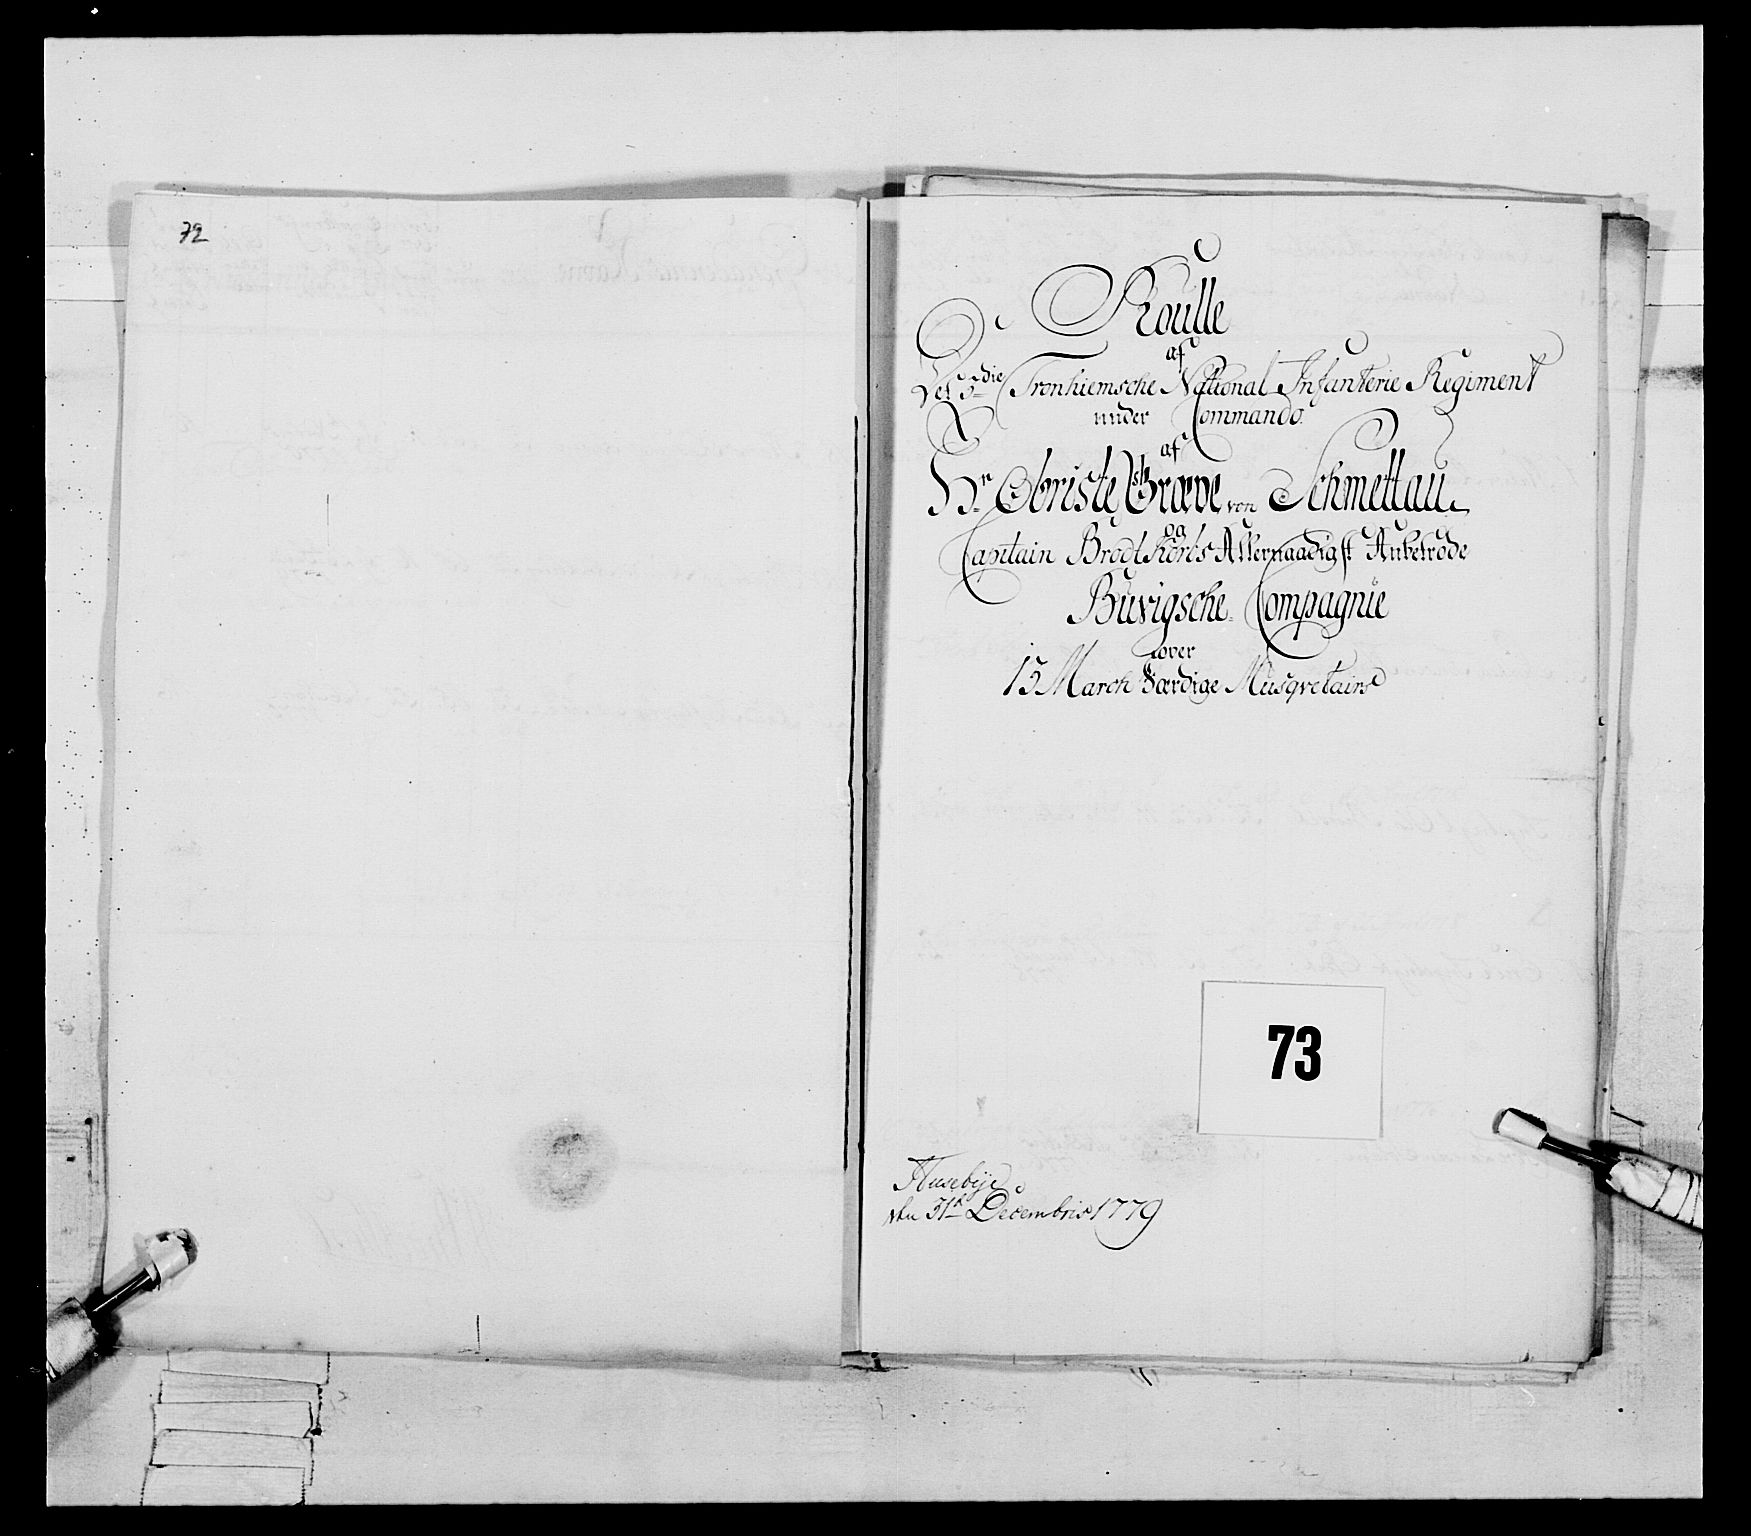 72
Roulle
af
Det 3die Tronhiemsche National Infanterie Regiment
under Commando
af
Hr Obriste Græve von Schmettau
og
Capitain BrodtKorbs Allernaadigst Anbetrode
Buvigsche Compagnie
over
15 March Færdige Musqvetairs
73
Husebÿe
den 31te Decembris 1779